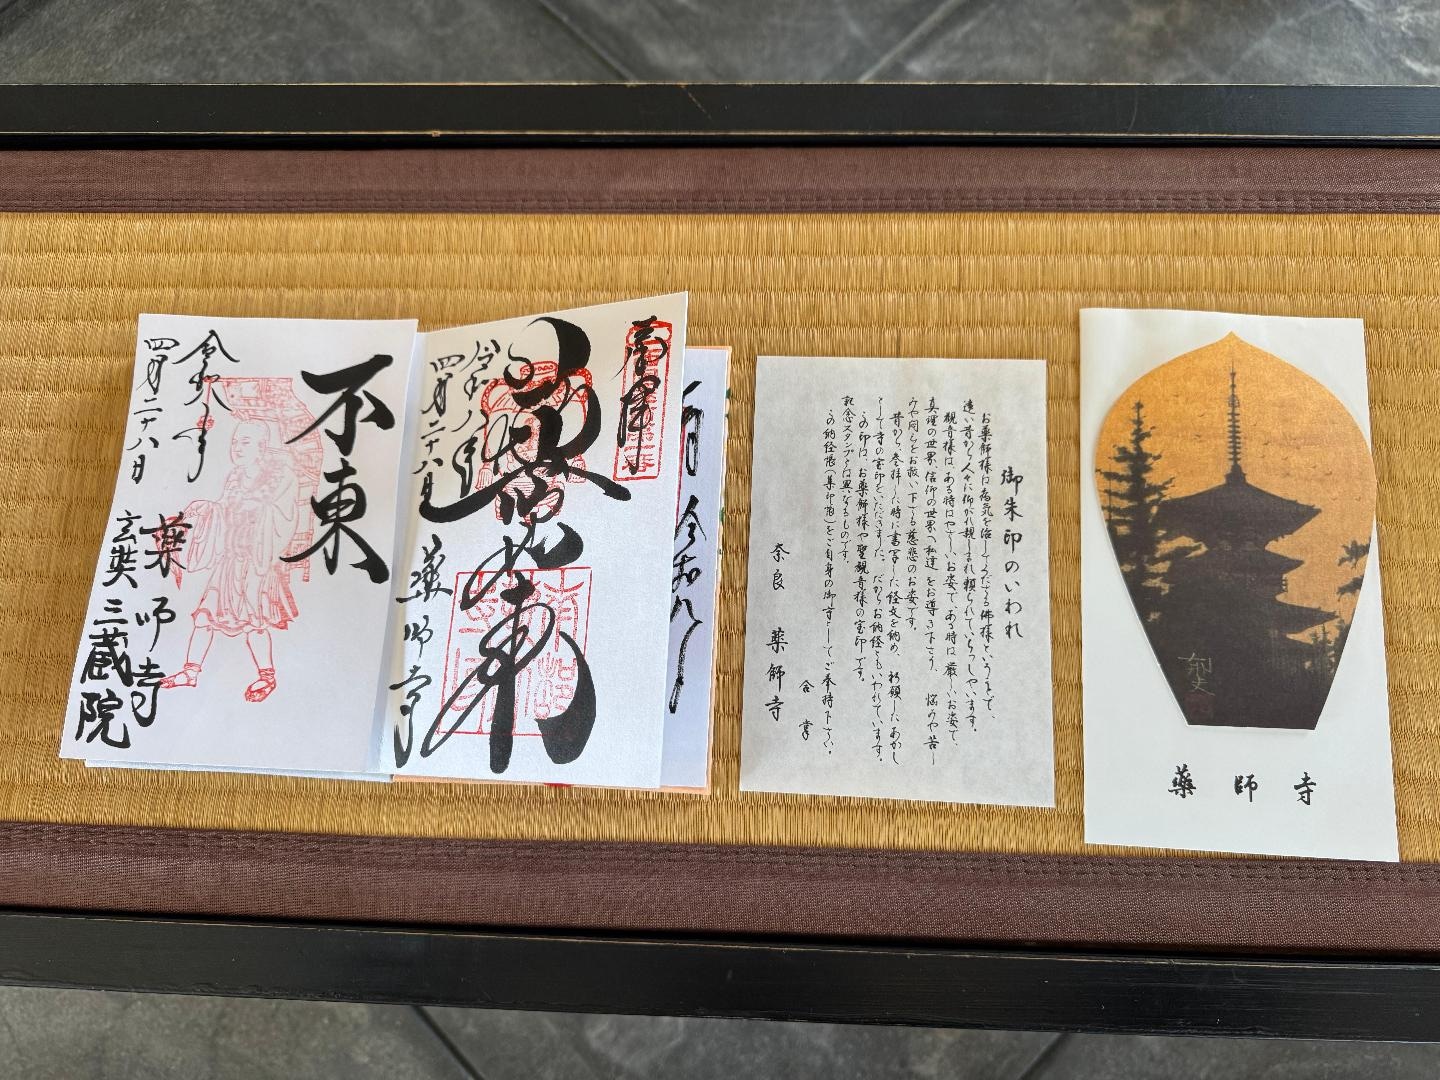 不東
令和八年
四月二十八日
薬師寺
玄奘三蔵院
奉拝
令和八年
四月二十八日
薬師寺
令和八
御朱印のいわれ
お薬師様は病気を治して下さる佛様というまで、
遠い昔から人々に仰がれ親しまれ頼られていらっしゃいます。
観音様は、ある時はやさしいお姿で、ある時は厳しいお姿で、
真理の世界、信仰の世界へ私達をお導き下さり、悩みや苦し
みや闇らをお救い下さる慈悲のお姿です。
昔から、参拝した時に書写した経文を納め、祈願したあかし
として寺の宝印をいただきました。だからお納経ともいわれています。
この印は、お薬師様や聖観音様の宝印です。
記念スタンプとは異なるものです。
この納経帳(集印帖)をご自身の御守としてご奉持下さい。
合掌
奈良 薬師寺
薬師寺